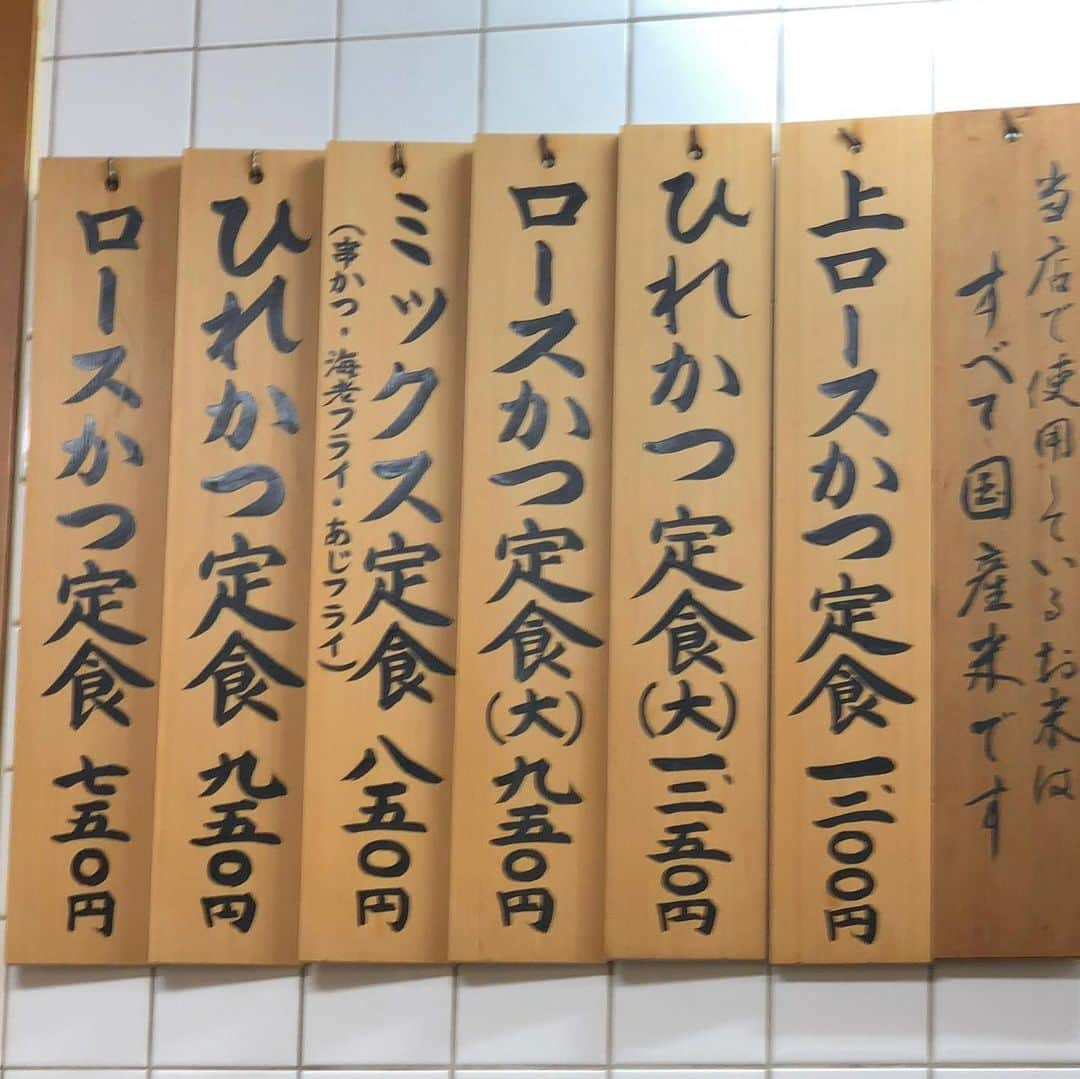 当店で使用しているお米は
すべて国産米です
上ロースかつ定食 一、二〇〇円
ひれかつ定食(大) 一、二五〇円
ロースかつ定食(大) 九五〇円
ミックス定食 八五〇円
(串かつ・海老フライ・あじフライ)
ひれかつ定食 九五〇円
ロースかつ定食 七五〇円